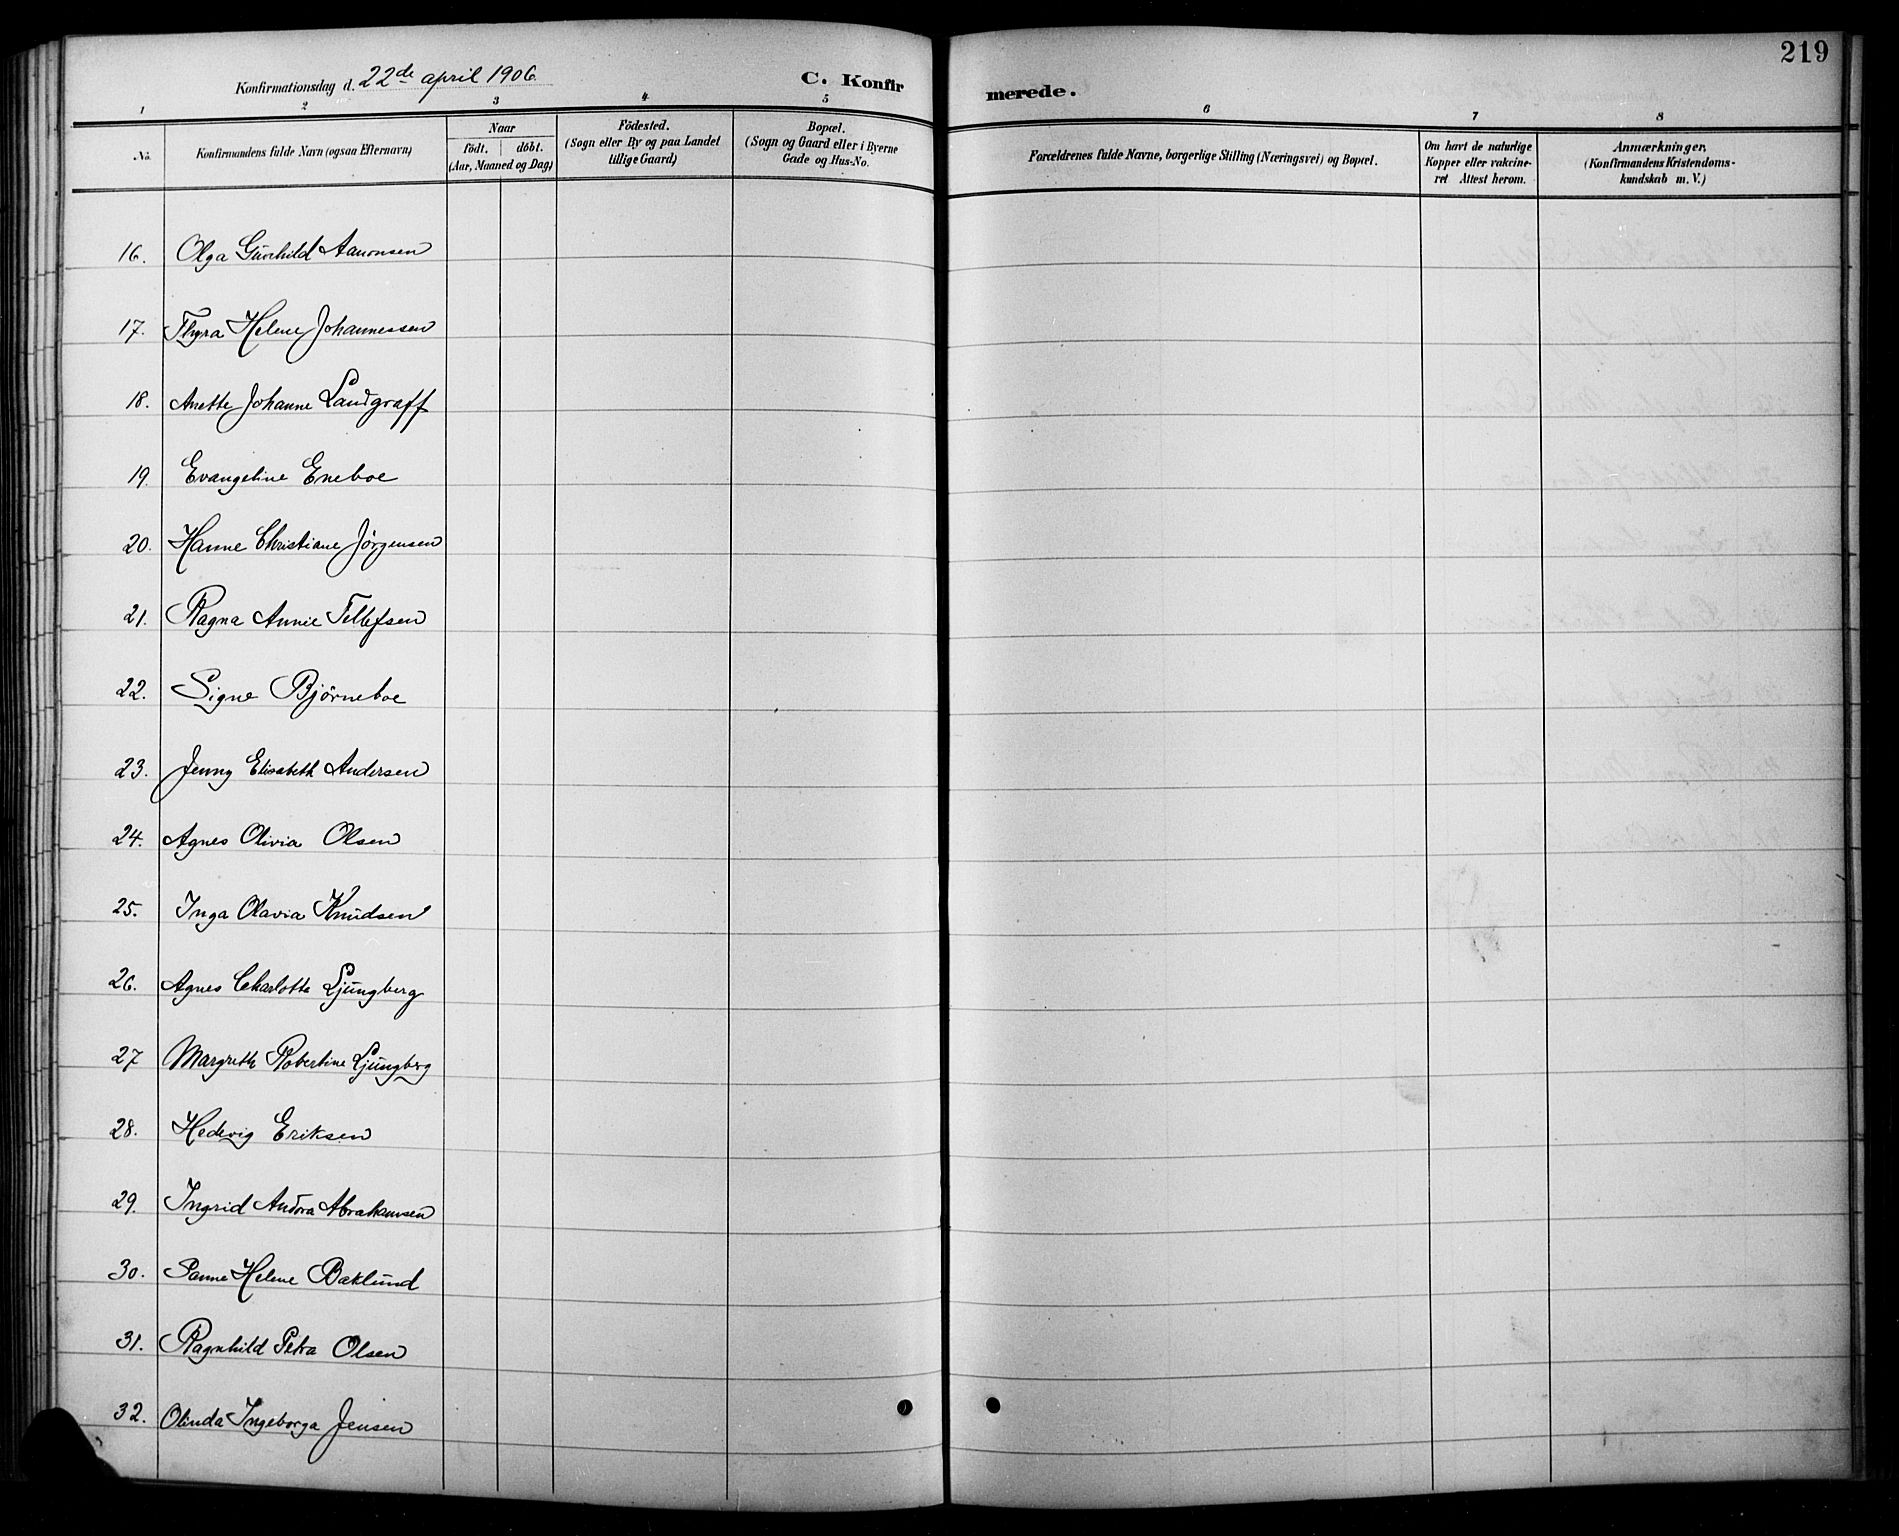 219
Konfirmationsdag d. 22de april 1906.
C. Konfirmerede.
1 2 3 4 5 6 7 8
No.
Konfirmandens fulde Navn (ogsaa Efternavn)
Naar
födt. | döbt.
(Aar, Maaned og Dag)
Födested.
(Sogn eller By og paa Landet
tillige Gaard)
Bopæl.
(Sogn og Gaard eller i Byerne
Gade og Hus-No.
Forældrenes fulde Navne, borgerlige Stilling (Næringsvei) og Bopæl.
Om havt de naturlige
Kopper eller vakcine-
ret Attest herom.
Anmærkninger,
(Konfirmandens Kristendoms-
kundskab m. V.)
16. Olga Gunhild Aanonsen
17. Thyra Helene Johannessen
18. Anette Johanne Landgraff
19. Evangeline Eneboe
20. Hanne Christiane Jörgensen
21. Ragna Annie Tellefsen
22. Signe Bjørneboe
23. Jenny Elisabeth Andersen
24. Agnes Olivia Olsen
25. Inga Olavia Knudsen
26. Agnes Charlotte Ljungberg
27 Margreth Robertine Ljungberg
28. Hedevig Eriksen
29. Ingrid Andora Abrahamsen
30. Sanne Helene Baklund
31. Ragnhild Petra Olsen
32. Olinda Ingeborga Jensen